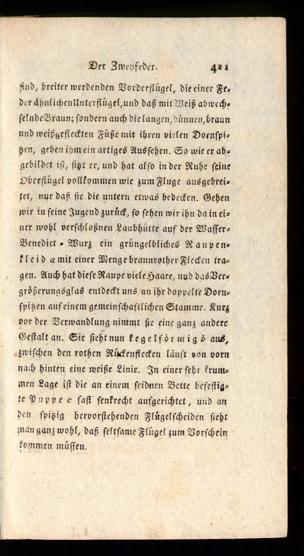 Der Zweyfeder. 421
sind, breiter werdenden Vorderflügel, die einer Fe-
der ähnlichen Unterflügel, und daß mit Weiß abwech-
selnde Braun; sondern auch die langen, dünnen, braun
und weißgefleckten Füße mit ihren vielen Dornspi-
tzen, geben ihm ein artiges Aussehen. So wie er ab-
gebildet ist, sitzt er, und hat also in der Ruhe seine
Oberflügel vollkommen wie zum Fluge ausgebrei-
tet, nur daß sie die untern etwas bedecken. Gehen
wir in seine Jugend zurück, so sehen wir ihn da in ei-
ner wohl verschloßnen Laubhütte auf der Wasser-
Benedict-Wurz ein grüngelbliches Raupen-
kleid a mit einer Menge braunrother Flecken tra-
gen. Auch hat diese Raupe viele Haare, und das Ver-
größerungsglas entdeckt uns an ihr doppelte Dorn-
spitzen auf einem gemeinschaftlichen Stamme. Kurz
vor der Verwandlung nimmt sie eine ganz andere
Gestalt an. Sie sieht nun kegelförmig b aus,
zwischen den rothen Rückenflecken läuft von vorn
nach hinten eine weiße Linie. In einer sehr krum-
men Lage ist die an einem seidnen Bette befestig-
te Puppe c fast senkrecht aufgerichtet, und an
den spitzig hervorstehenden Flügelscheiden sieht
man ganz wohl, daß seltsame Flügel zum Vorschein
kommen müssen.